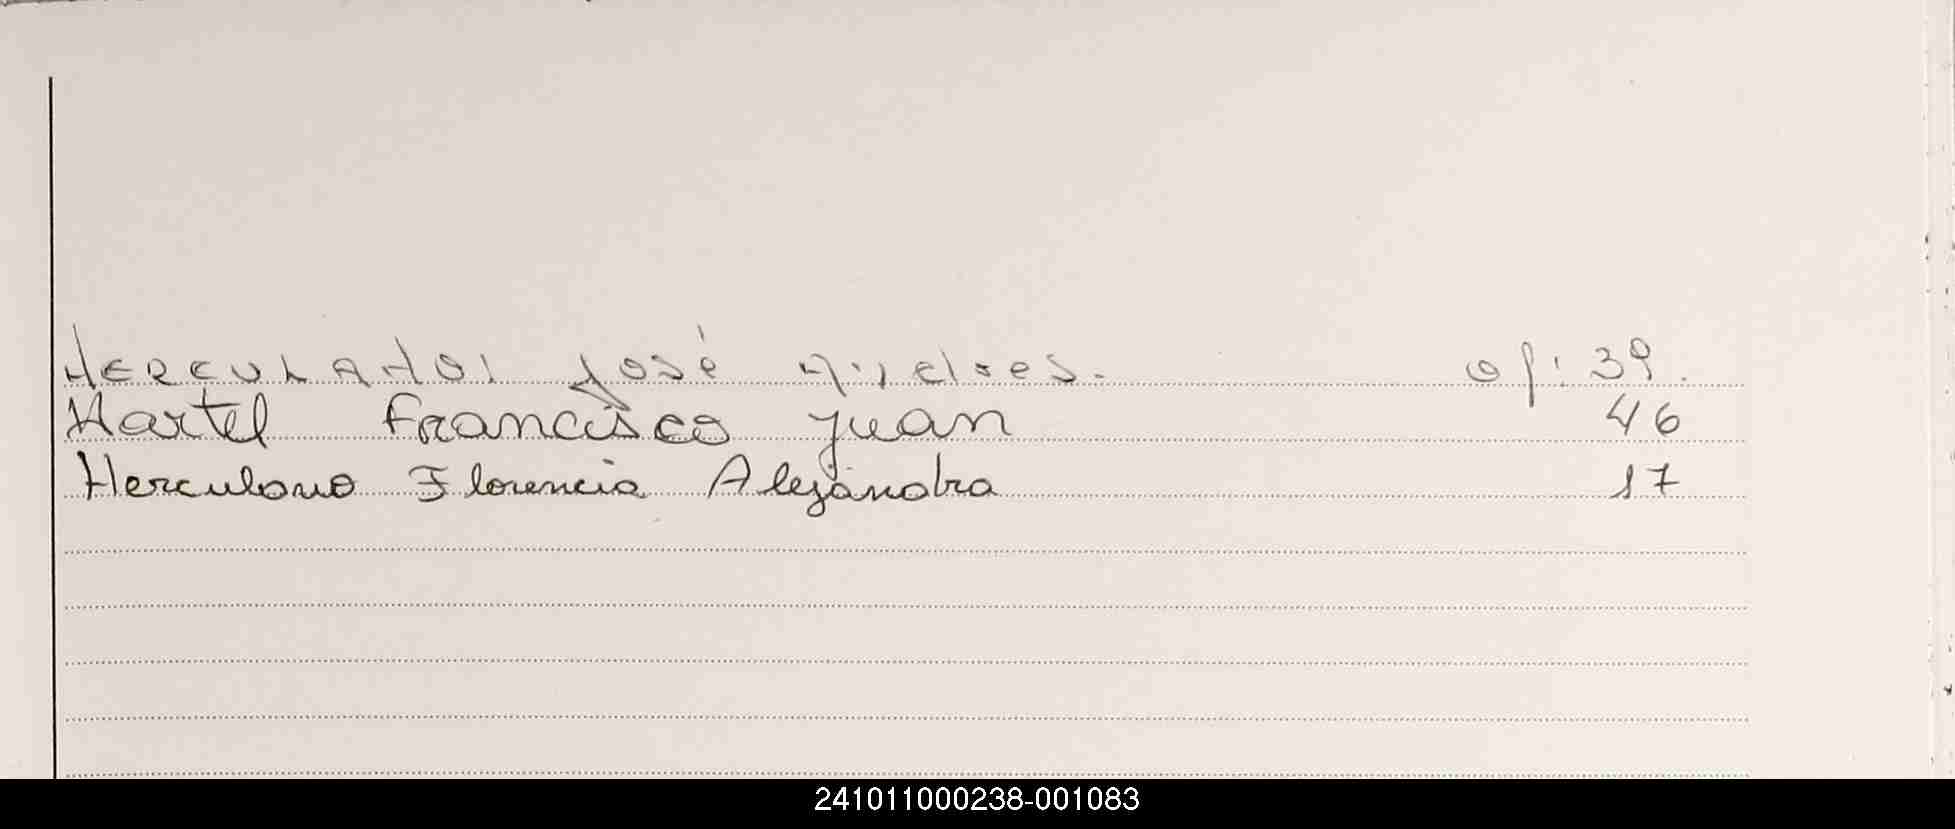 José of: 39.
Hartel Francisco Juan 46
Herculano Florencia Alejandra 17
241011000238-001083